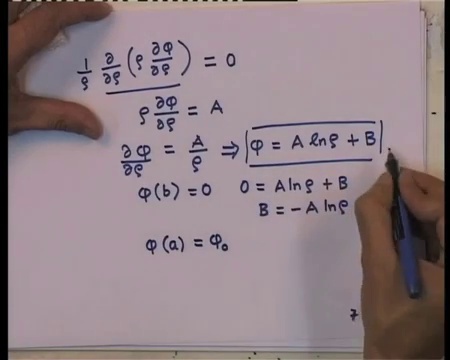 1/ρ ∂/∂ρ (ρ ∂φ/∂ρ) = 0
ρ ∂φ/∂ρ = A
∂φ/∂ρ = A/ρ ⇒ φ = A ln ρ + B
φ(b) = 0 0 = A ln ρ + B
B = - A ln ρ
φ(a) = φ₀
7